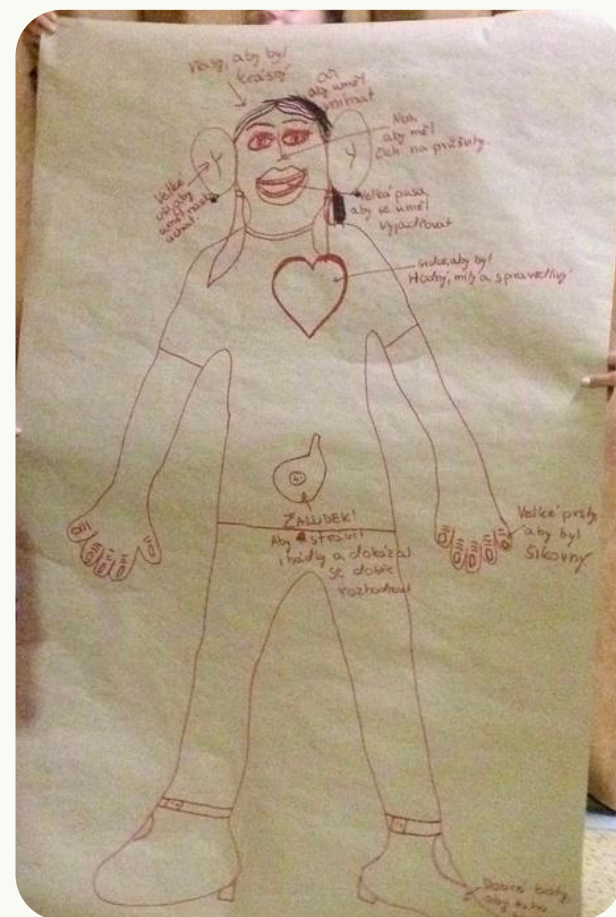 Vlasy, aby byl
krásný
oči
aby uměl
vnímat
Nos,
aby měl
čich na průšvihy.
Velké
uši, aby
uměl
Velká pusa,
aby se uměl
vyjadřovat
srdce, aby byl
Hodný, milý a spravedlivý
ŽALUDEK!
Aby strávil
i hádky a dokázal
se dobře
rozhodnout
Velké prsty,
aby byl
šikovný
Dobré boty,
aby